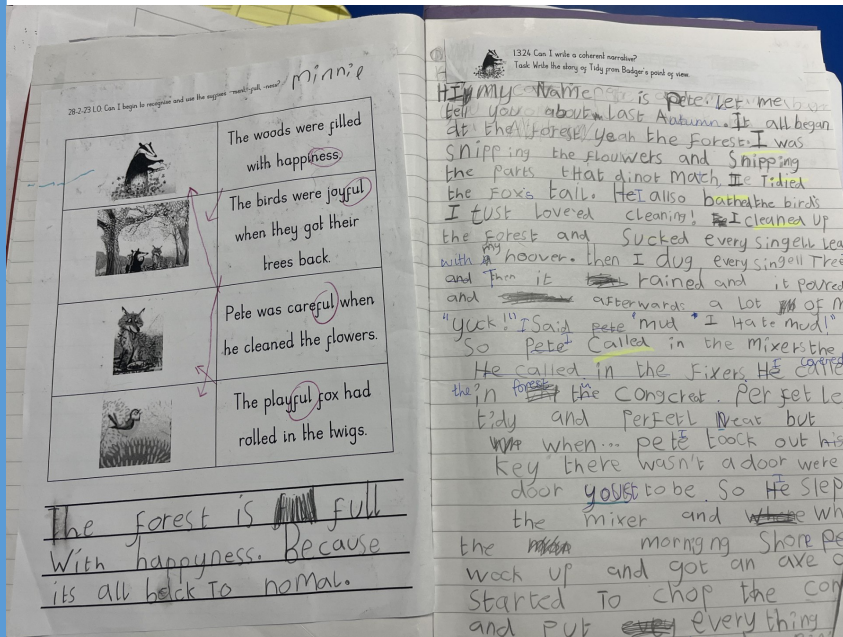 28-2-23 L.O. Can I begin to recognise and use the suffixes -ment, -full, -ness?
minnie
The woods were filled
with happiness.
The birds were joyful
when they got their
trees back.
Pete was careful when
he cleaned the flowers.
The playful fox had
rolled in the twigs.
The forest is full
With happyness. Because
its all back To nomal.
1.3.24 Can I write a coherent narrative?
Task: Write the story of Tidy from Badger's point of view.
HI my Name is pete. Let me
tell you about Last Autumn. It all began
at the forest, yeah the Forest. I was
Snipping the flouwers and Snipping
the parts tHat dinot match. Tidied
the Fox's tail. I also bathed the birds
I tust Lovered cleaning! I cleaned up
the Forest and Sucked every singell Lea
with my hoover. then I dug every singell Tree
and Then it rained and it poured
and afterwards a Lot of m
"yuck!" I Said pete "mud" I Hate mud!"
So Pete I Called in the mixers the
He called in the Fixers. He I covered
the forest in the congcret. perfet Le
tidy and perfetl Neat but
when... pete I toock out his
key there wasn't a door were
door youst to be. So He I Slep
the mixer and wh
the mornigng Shore Pe
wock up and got an axe
Started To chop the con
and put every thing